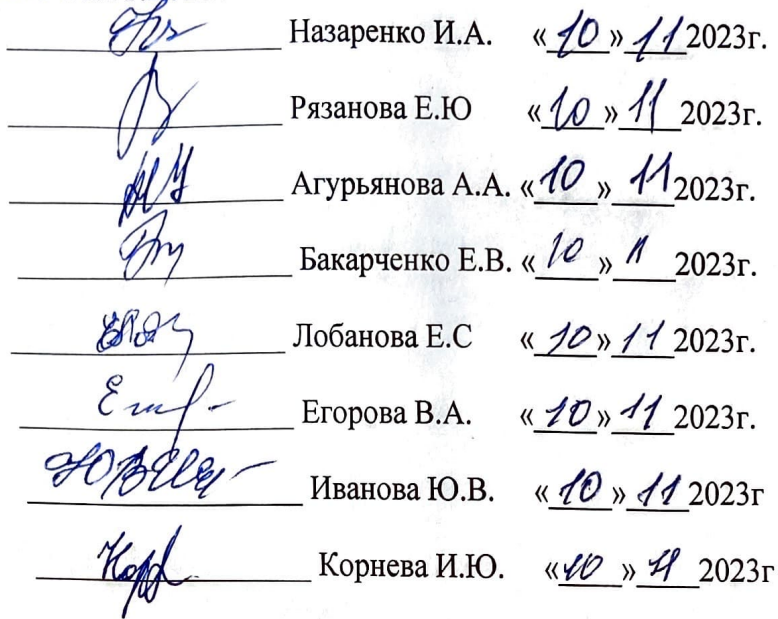 Назаренко И.А. «10» 11 2023г.
Рязанова Е.Ю «10» 11 2023г.
Агурьянова А.А. «10» 11 2023г.
Бакарченко Е.В. «10» 11 2023г.
Лобанова Е.С «10» 11 2023г.
Егорова В.А. «10» 11 2023г.
Иванова Ю.В. «10» 11 2023г
Корнева И.Ю. «10» 11 2023г